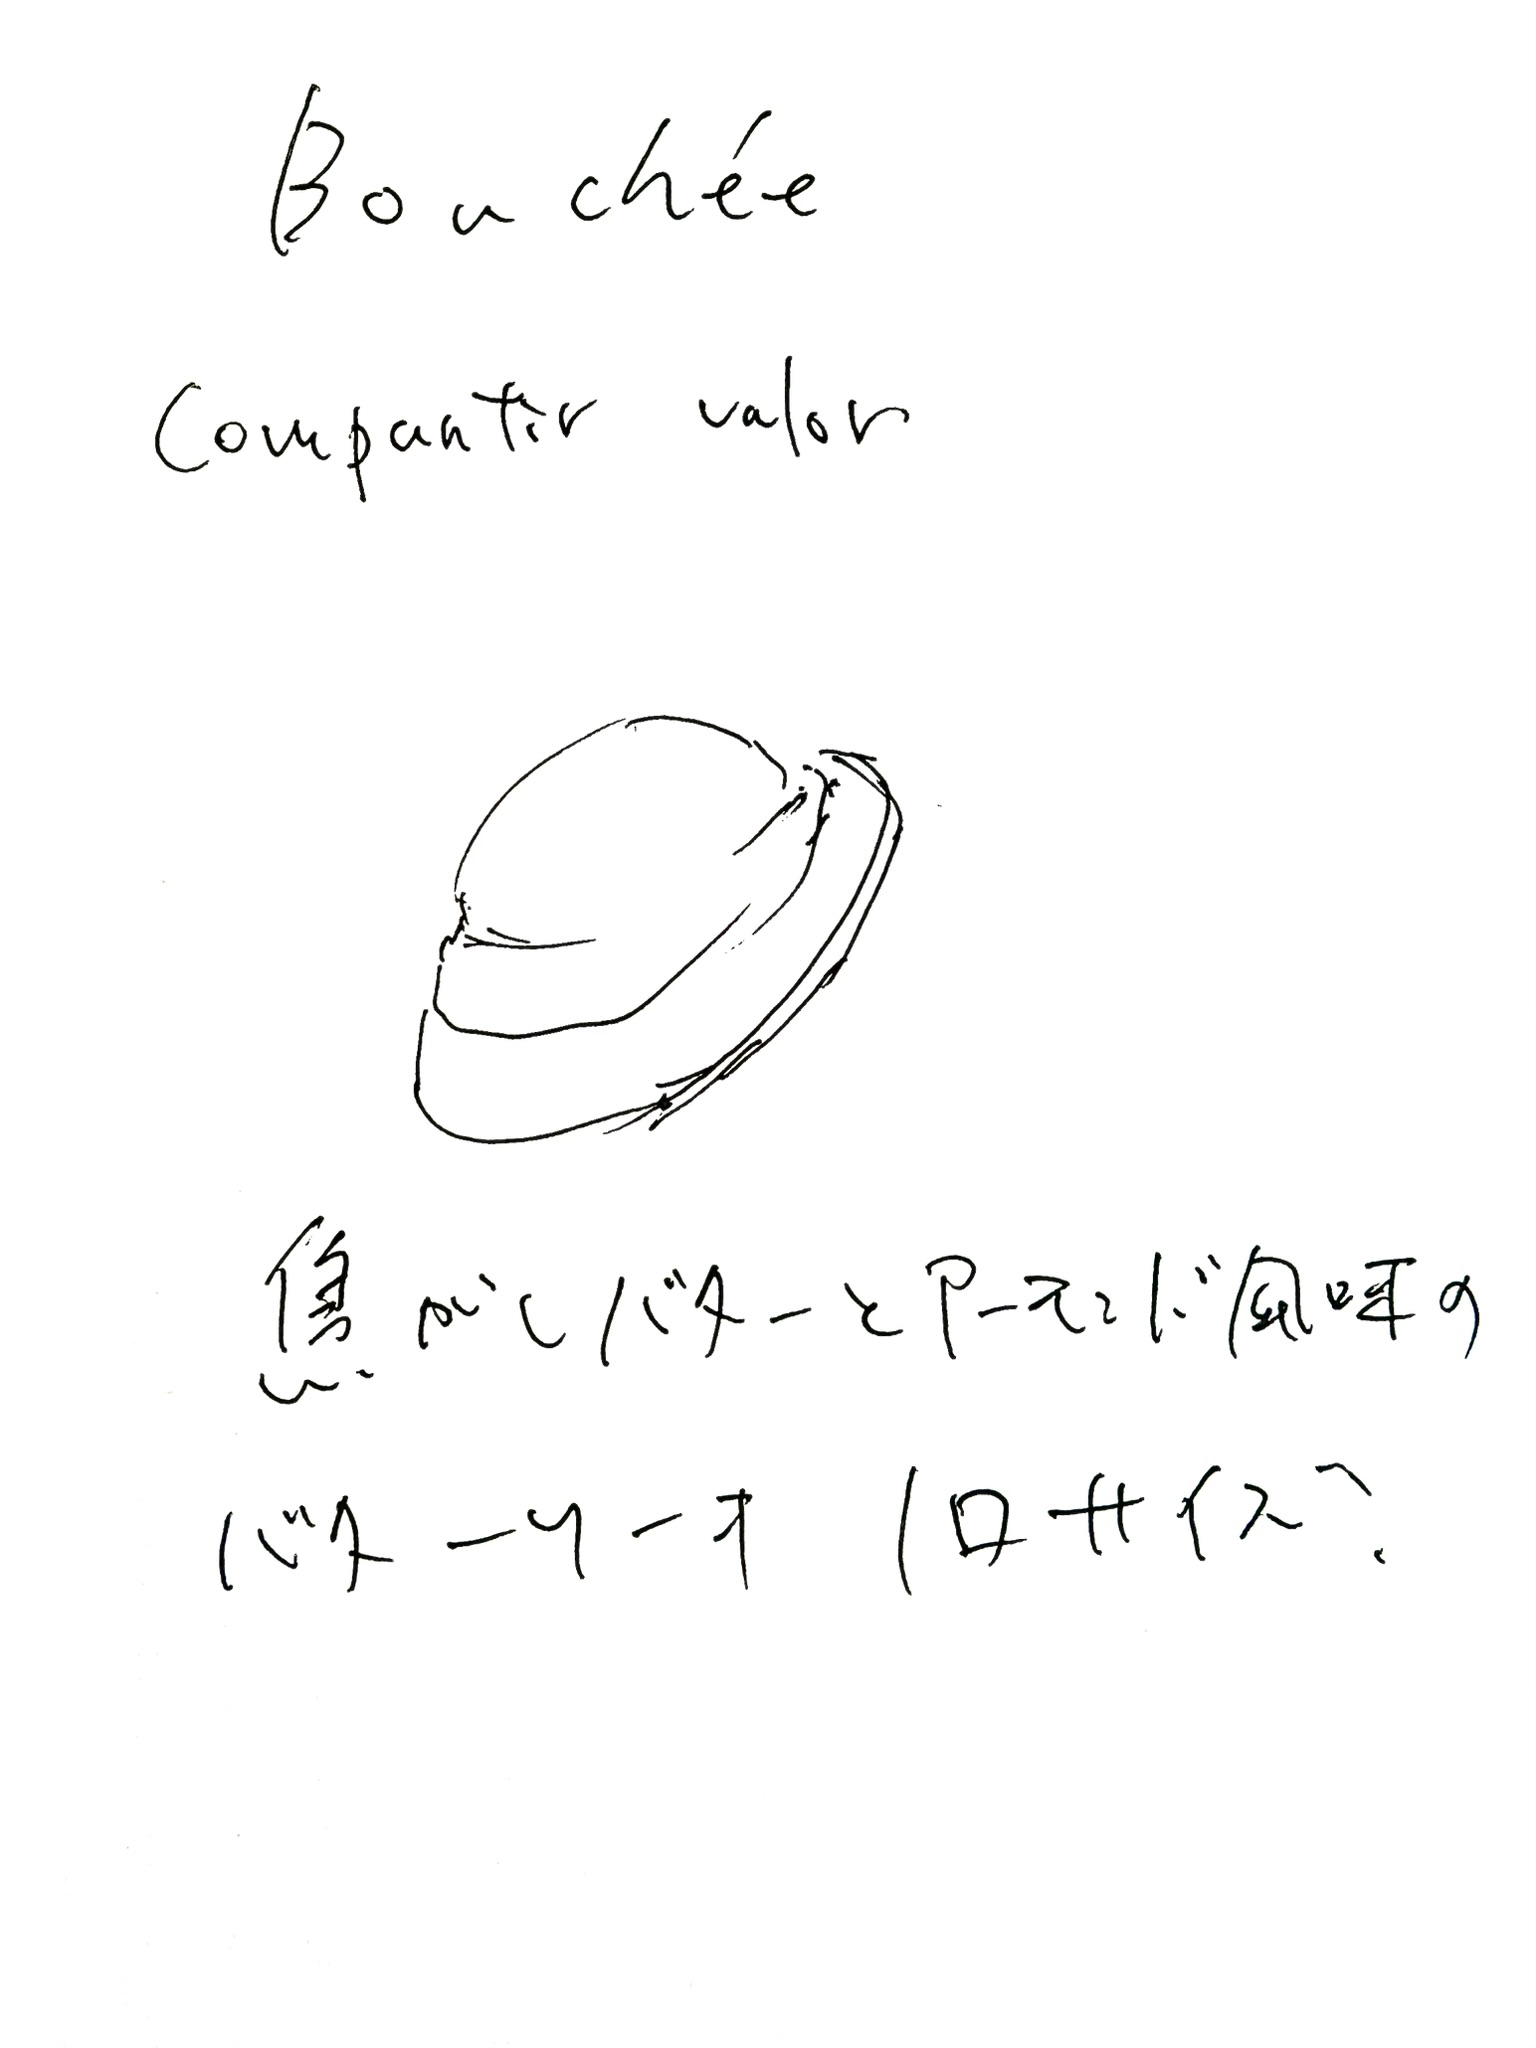 Bouchée
Compartir valor
焦がしバターとアーモンド風味の
バターケーキ 1口サイズ